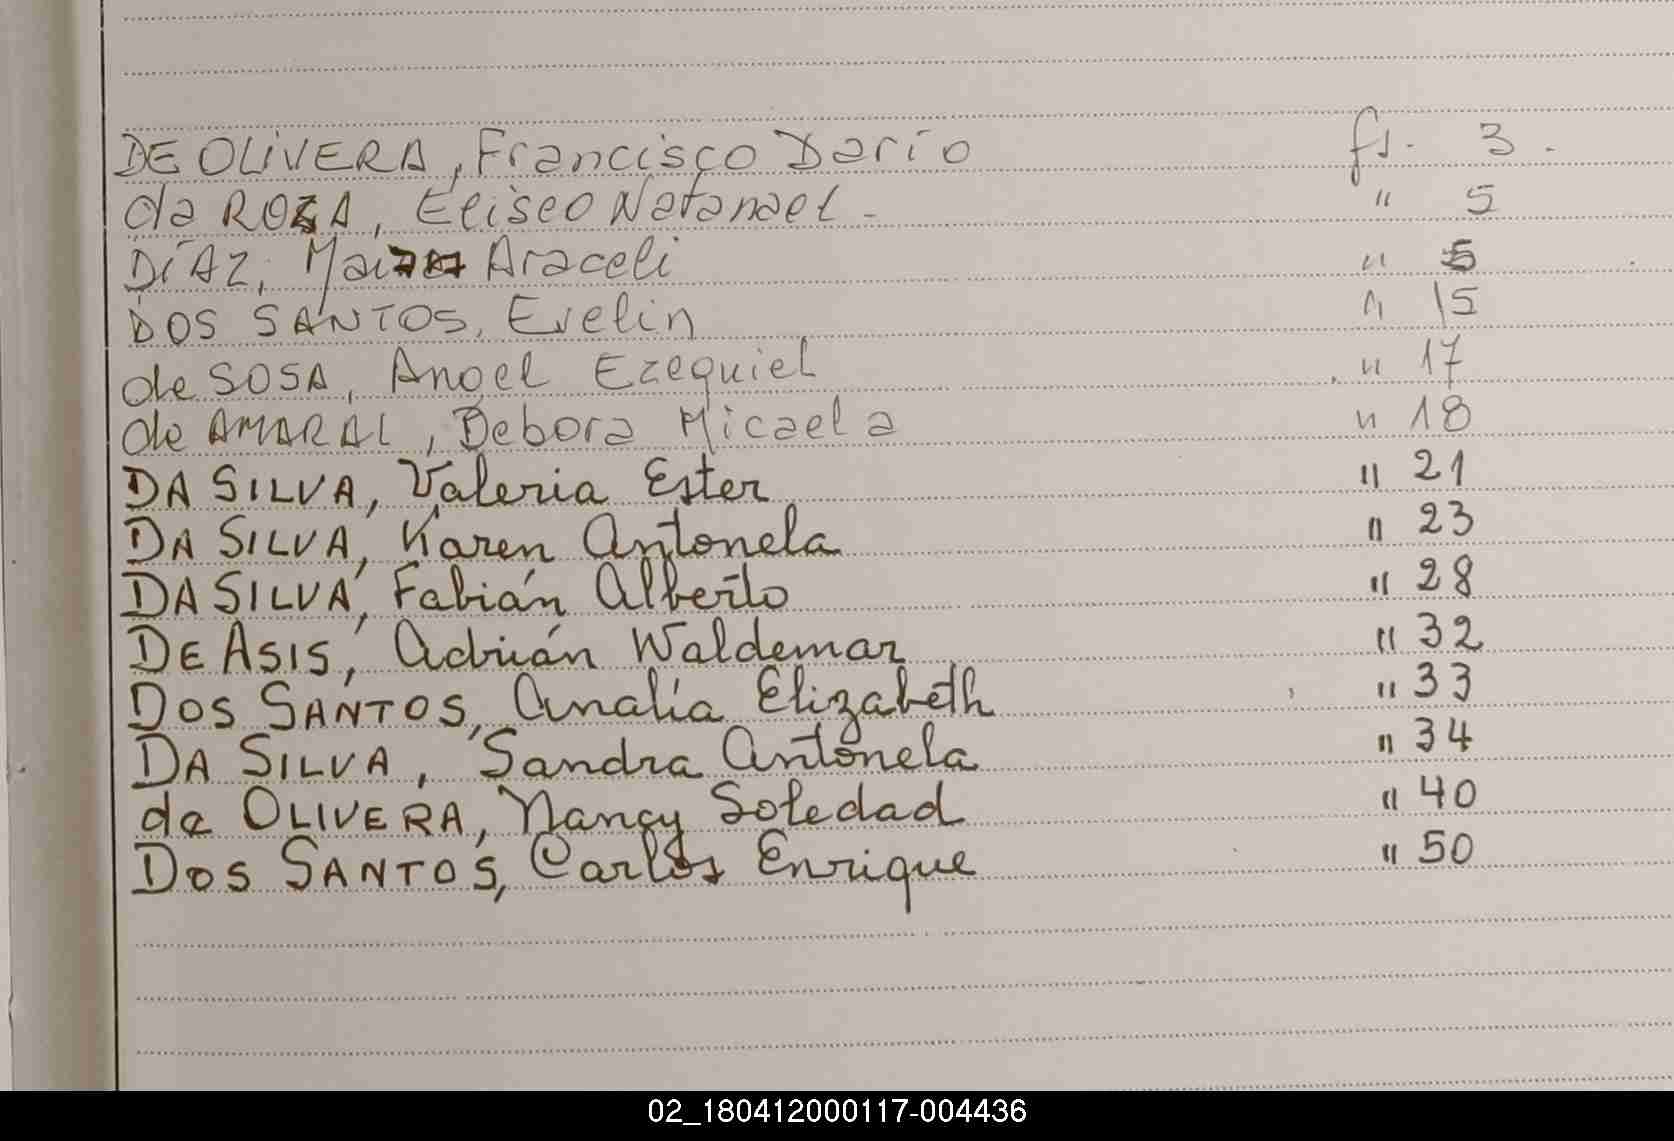 DE OLIVERA, Francisco Darío fs. 3.
da ROZA, Eliseo Natanael - " 5
DÍAZ, Araceli " 5
DOS SANTOS, Evelin " 15
de SOSA, Angel Ezequiel " 17
de AMARAL, Debora Micaela " 18
DA SILVA, Valeria Ester " 21
DA SILVA, Karen Antonela " 23
DA SILVA, Fabián Alberto " 28
DE ASIS, Adrián Waldemar " 32
DOS SANTOS, Analía Elizabeth " 33
DA SILVA, Sandra Antonela " 34
de OLIVERA, Nancy Soledad " 40
DOS SANTOS, Carlos Enrique " 50
02_180412000117-004436